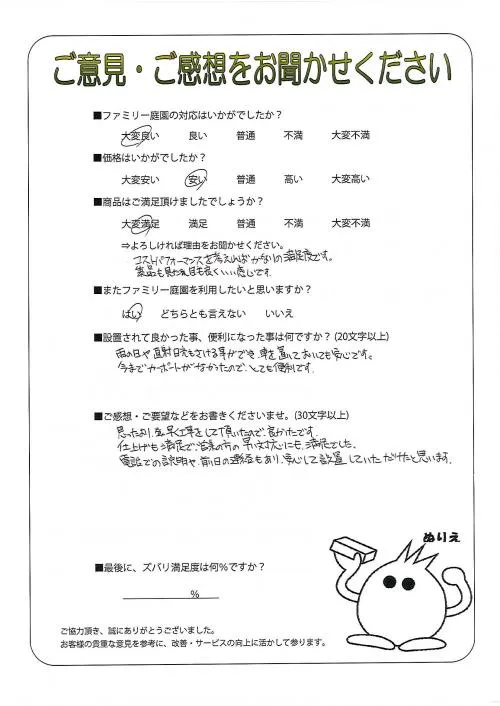 ご意見・ご感想をお聞かせください
■ファミリー庭園の対応はいかがでしたか？
大変良い 良い 普通 不満 大変不満
■価格はいかがでしたか？
大変安い 安い 普通 高い 大変高い
■商品はご満足頂けましたでしょうか？
大変満足 満足 普通 不満 大変不満
⇒よろしければ理由をお聞かせください。
コストパフォーマンスを考えればかなりの満足度です。
製品も見た目も良く、いい感じです。
■またファミリー庭園を利用したいと思いますか？
はい どちらとも言えない いいえ
■設置されて良かった事、便利になった事は何ですか？(20文字以上)
雨の日や直射日光もさける事ができ、車を置いておいても安心です。
今までカーポートがなかったので、とても便利です。
■ご感想・ご要望などをお書きくださいませ。(30文字以上)
思ったより、も早く工事をして頂いたので、良かったです。
仕上げも満足で、営業の方の早い対応にも、満足でした。
電話での説明や、前日の連絡もあり、安心して設置していただけたと思います。
ぬりえ
■最後に、ズバリ満足度は何％ですか？
％
ご協力頂き、誠にありがとうございました。
お客様の貴重な意見を参考に、改善・サービスの向上に活かして参ります。